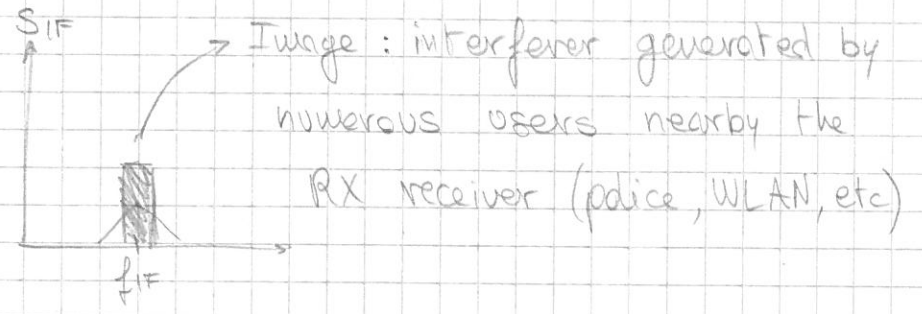 SIF
Image : interferer generated by
numerous users nearby the
RX receiver (police, WLAN, etc)
fIF